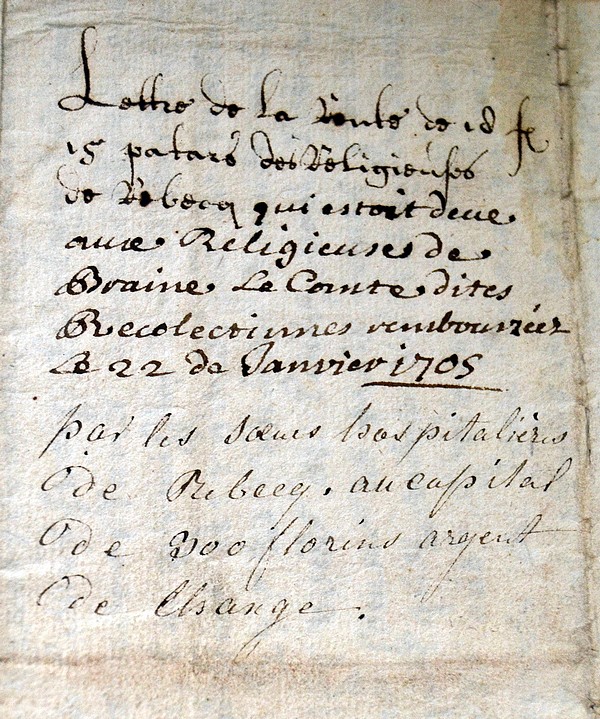 Lettre de la Rente de 18 fl
15 patars des Religieuses
de Rebecq qui estoit deue
aux Religieuses de
Braine Le Comte dites
Recolectinnes remboursées
Le 22 de Janvier 1705
par les sœurs hospitalières
de Rebecq. au capital
de 300 florins argent
de Change.